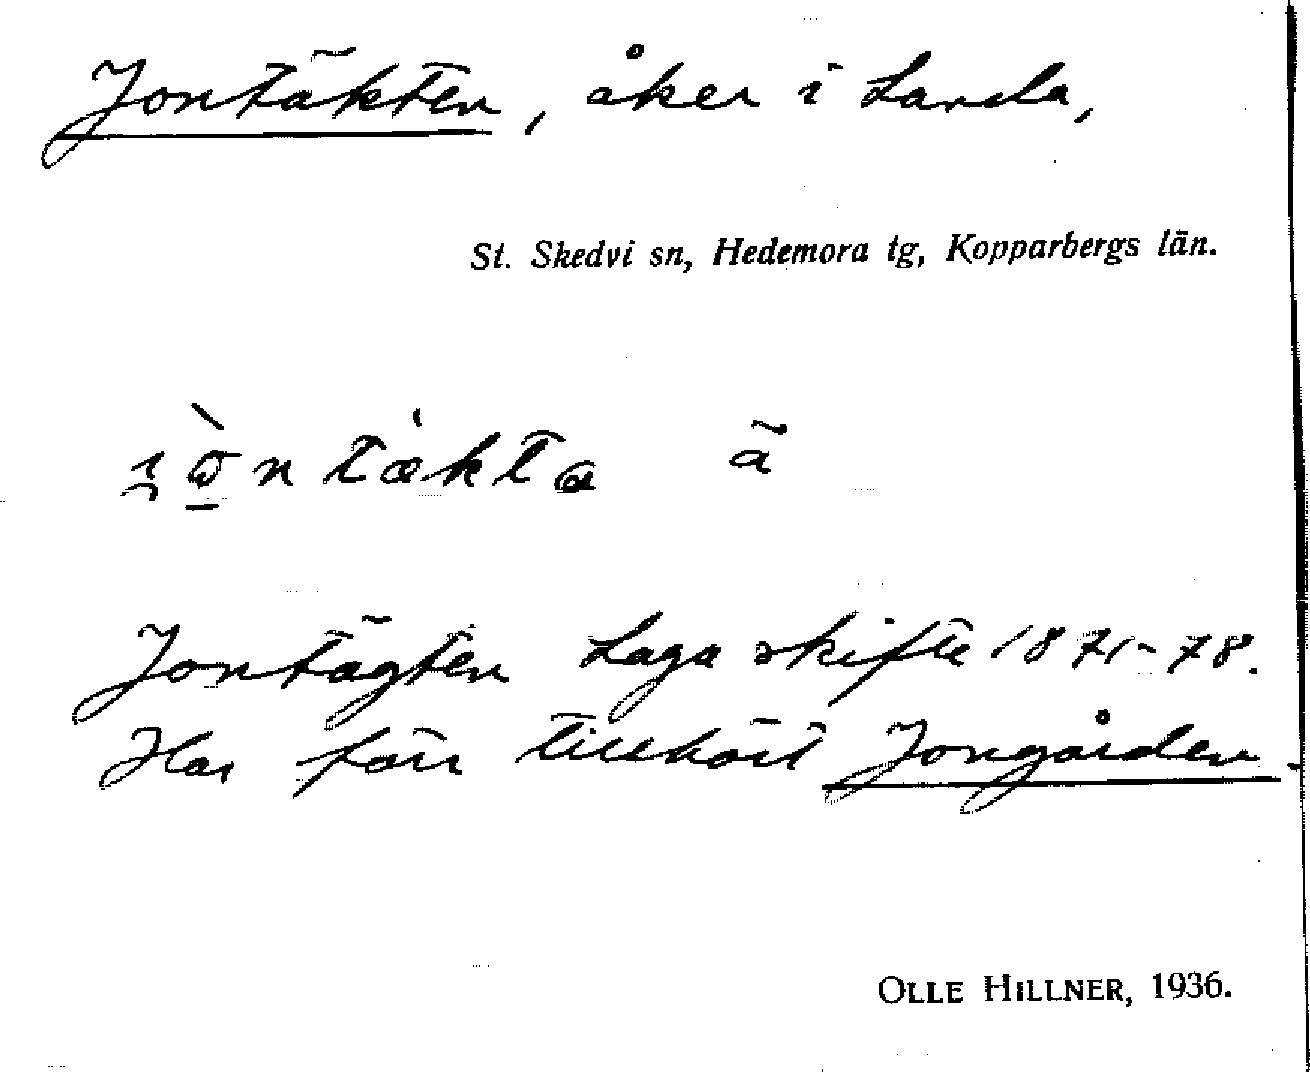 Jontäkten, åker i Landa,
St. Skedvi sn, Hedemora tg, Kopparbergs län.
Jontägten Laga skifte 1871-78.
Har förr tillhört Jongården.
OLLE HILLNER, 1936.